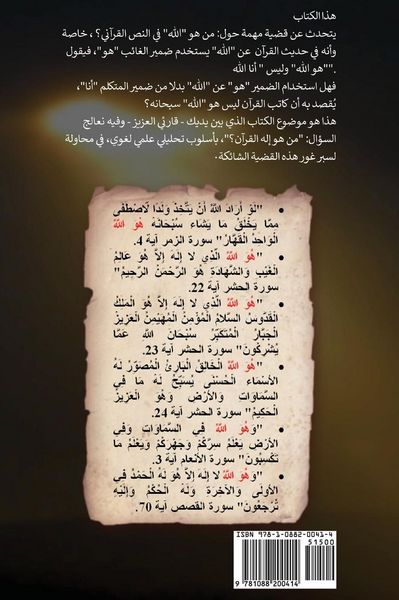 هذا الكتاب
يتحدث عن قضية مهمة حول: من هو "الله" في النص القرآني؟ ، خاصة
وأنه في حديث القرآن عن "الله" يستخدم ضمير الغائب "هو"، فيقول
."“هو الله" وليس " أنا الله
فهل استخدام الضمير "هو" عن "الله" بدلا من ضمير المتكلم "أنا"،
يُقصد به أن كاتب القرآن ليس هو "الله" سبحانه؟
هذا هو موضوع الكتاب الذي بين يديك - قارئي العزيز - وفيه نعالج
السؤال: "من هو إله القرآن؟"، بأسلوب تحليلي علمي لغوي، في محاولة
لسبر غور هذه القضية الشائكة.
• "لَوْ أَرَادَ اللَّهُ أَنْ يَتَّخِذَ وَلَدًا لَاصْطَفَى
مِمَّا يَخْلُقُ مَا يَشَاءُ سُبْحَانَهُ هُوَ اللَّهُ
الْوَاحِدُ الْقَهَّارُ" سورة الزمر آية 4.
• "هُوَ اللَّهُ الَّذِي لَا إِلَهَ إِلَّا هُوَ عَالِمُ
الْغَيْبِ وَالشَّهَادَةِ هُوَ الرَّحْمَنُ الرَّحِيمُ"
سورة الحشر آية 22.
• "هُوَ اللَّهُ الَّذِي لَا إِلَهَ إِلَّا هُوَ الْمَلِكُ
الْقُدُّوسُ السَّلَامُ الْمُؤْمِنُ الْمُهَيْمِنُ الْعَزِيزُ
الْجَبَّارُ الْمُتَكَبِّرُ سُبْحَانَ اللَّهِ عَمَّا
يُشْرِكُونَ" سورة الحشر آية 23.
• "هُوَ اللَّهُ الْخَالِقُ الْبَارِئُ الْمُصَوِّرُ لَهُ
الْأَسْمَاءُ الْحُسْنَى يُسَبِّحُ لَهُ مَا فِي
السَّمَاوَاتِ وَالْأَرْضِ وَهُوَ الْعَزِيزُ
الْحَكِيمُ" سورة الحشر آية 24.
• "وَهُوَ اللَّهُ فِي السَّمَاوَاتِ وَفِي
الْأَرْضِ يَعْلَمُ سِرَّكُمْ وَجَهْرَكُمْ وَيَعْلَمُ مَا
تَكْسِبُونَ" سورة الأنعام آية 3.
• "وَهُوَ اللَّهُ لَا إِلَهَ إِلَّا هُوَ لَهُ الْحَمْدُ فِي
الْأُولَى وَالْآخِرَةِ وَلَهُ الْحُكْمُ وَإِلَيْهِ
تُرْجَعُونَ" سورة القصص آية 70.
ISBN 978-1-0882-0041-4
51500
9 781088 200414